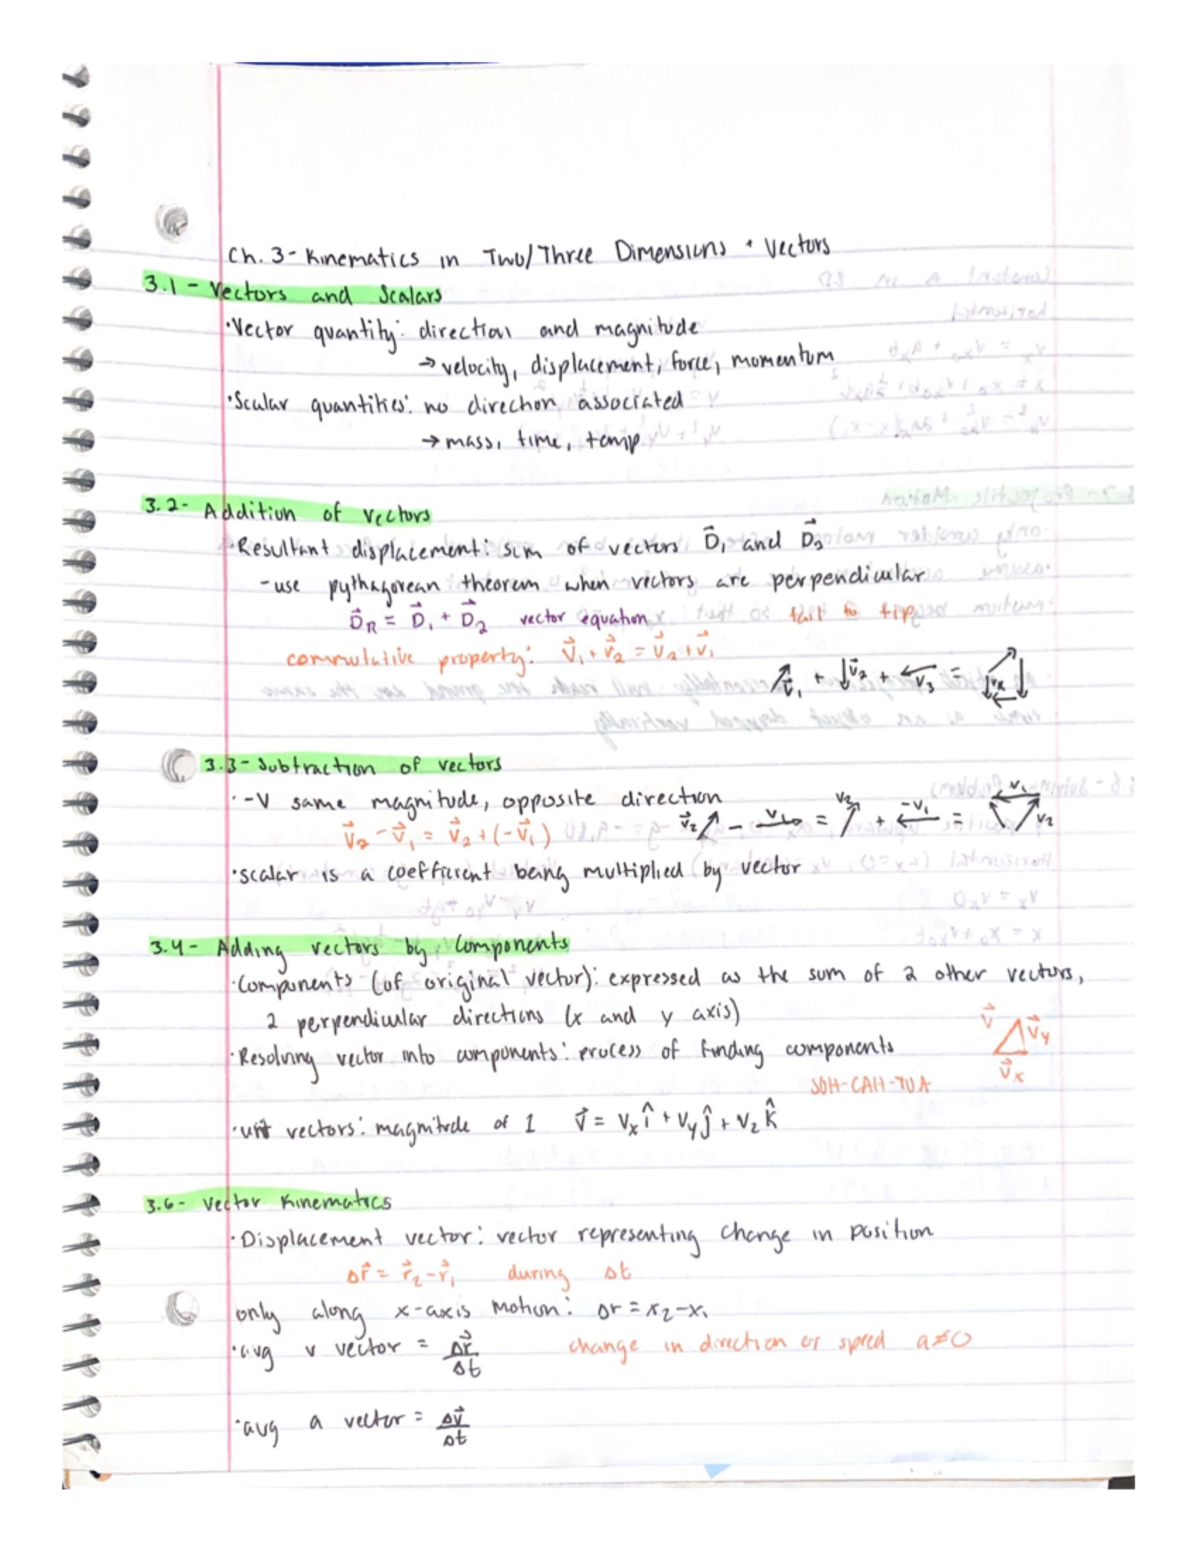 Ch. 3 - Kinematics in Two/Three Dimensions + Vectors
3.1 - Vectors and Scalars
· Vector quantity: direction and magnitude
→ velocity, displacement, force, momentum
· Scalar quantities: no direction associated
→ mass, time, temp
3.2 - Addition of vectors
· Resultant displacement: sum of vectors D⃗₁ and D⃗₂
- use pythagorean theorem when vectors are perpendicular
D⃗R = D⃗₁ + D⃗₂ vector equation tail to tip
commutative property: v⃗₁ + v⃗₂ = v⃗₂ + v⃗₁
v⃗₁ + v⃗₂ + v⃗₃ = vR
3.3 - Subtraction of vectors
· -V same magnitude, opposite direction
v⃗₂ - v⃗₁ = v⃗₂ + (-v⃗₁) v⃗₂ - v₁ = v₂ + -v₁ = -v₁ v₂
· scalar is a coefficient being multiplied by vector
3.4 - Adding vectors by Components
· Components (of original vector): expressed as the sum of 2 other vectors,
2 perpendicular directions (x and y axis)
v⃗ v⃗y v⃗x
· Resolving vector into components: process of finding components
SOH-CAH-TOA
· unit vectors: magnitude of 1 v⃗ = vₓî + vyĵ + vzk̂
3.6 - Vector Kinematics
· Displacement vector: vector representing change in position
Δr⃗ = r⃗₂ - r⃗₁ during Δt
only along x-axis motion: Δr = x₂ - x₁
· avg v vector = Δr⃗/Δt change in direction or speed a≠0
· avg a vector = Δv⃗/Δt